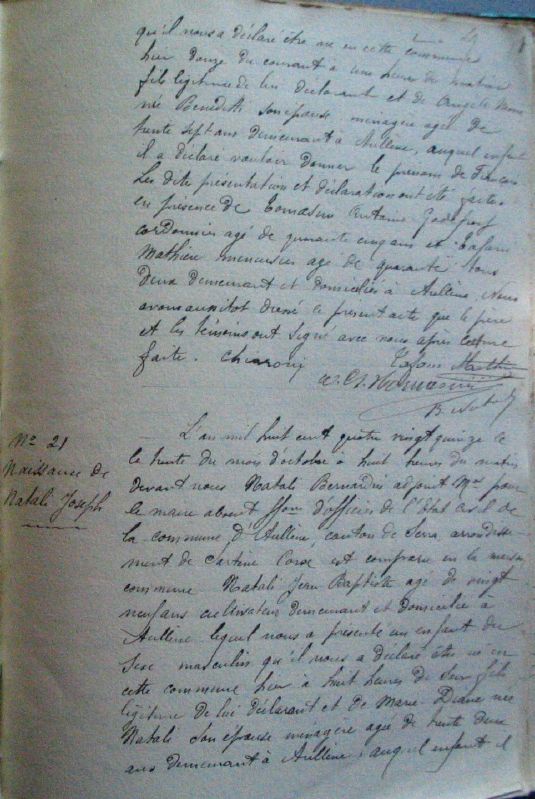 qu'il nous a déclaré être né en cette commune
hier douze du courant à une heure du matin
fils légitime de lui déclarant et de Angèle Marie
née Benedetti son épouse ménagère agée de
trente sept ans demeurant à Aullène, auquel enfant
il a déclaré vouloir donner le prénom de
Les dite présentation et déclaration ont été faites
en présence de Tomasini Antoine
cordonnier agé de quarante cinq ans et Lafani
Mathieu menuisier agé de quarante Tous
deux demeurant et domiciliés à Aullène, Nous
avons aussitot dressé le present acte que le père
et les témoins ont signé avec nous après lecture
faite.
Nº 21
Naissance de
Natali Joseph
L'an mil huit cent quatre vingt quinze le
le trente du mois d'octobre à huit heures du matin
devant nous Natali Bernardin adjoint Mal pour
le maire absent ffons d'officier de l'état civil de
la commune d'Aullène, canton de Serra arrondisse-
ment de Sartène Corse est comparu en la maison
commune Natali Jean Baptiste agé de vingt
neuf ans cultivateur demeurant et domicilié à
Aullène lequel nous a présenté un enfant du
Sexe masculin qu'il nous a déclaré être né en
cette commune hier à huit heures du soir fils
légitime de lui déclarant et de Marie Diane née
Natali son épouse ménagère agée de trente deux
ans demeurant à Aullène, auquel enfant il